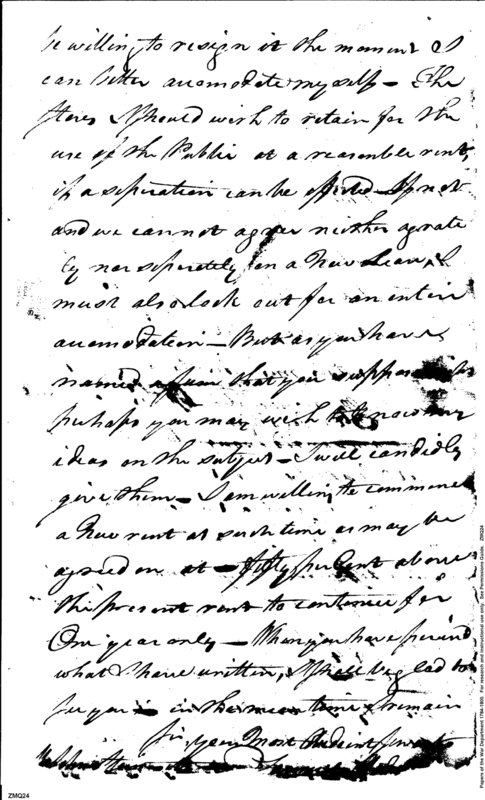 be willing to resign it the moment I
can better accomodate myself — The
stores I should wish to retain for the
use of the Public at a reasonable rent,
if a seperation can be effected — If not
and we cannot agree neither agrate
ly nor seperately on a New Lease, I
must also look out for an entire
accomodation — But as you have
named a sum that you suppose
perhaps you may wish to know my
ideas on the subject — I will candidly
give them — I am willing to commence
a New rent at such time as may be
agreed on at — fifty per Cent above
the present rent to continue for
One year only — When you have perused
what I have written, I shall be glad to
see you — in the mean time I remain
Sir, your Most Obedient Servant
ZMQ24
Papers of the War Department 1784-1800. For research and instructional use only. See Permissions Guide. ZMQ24